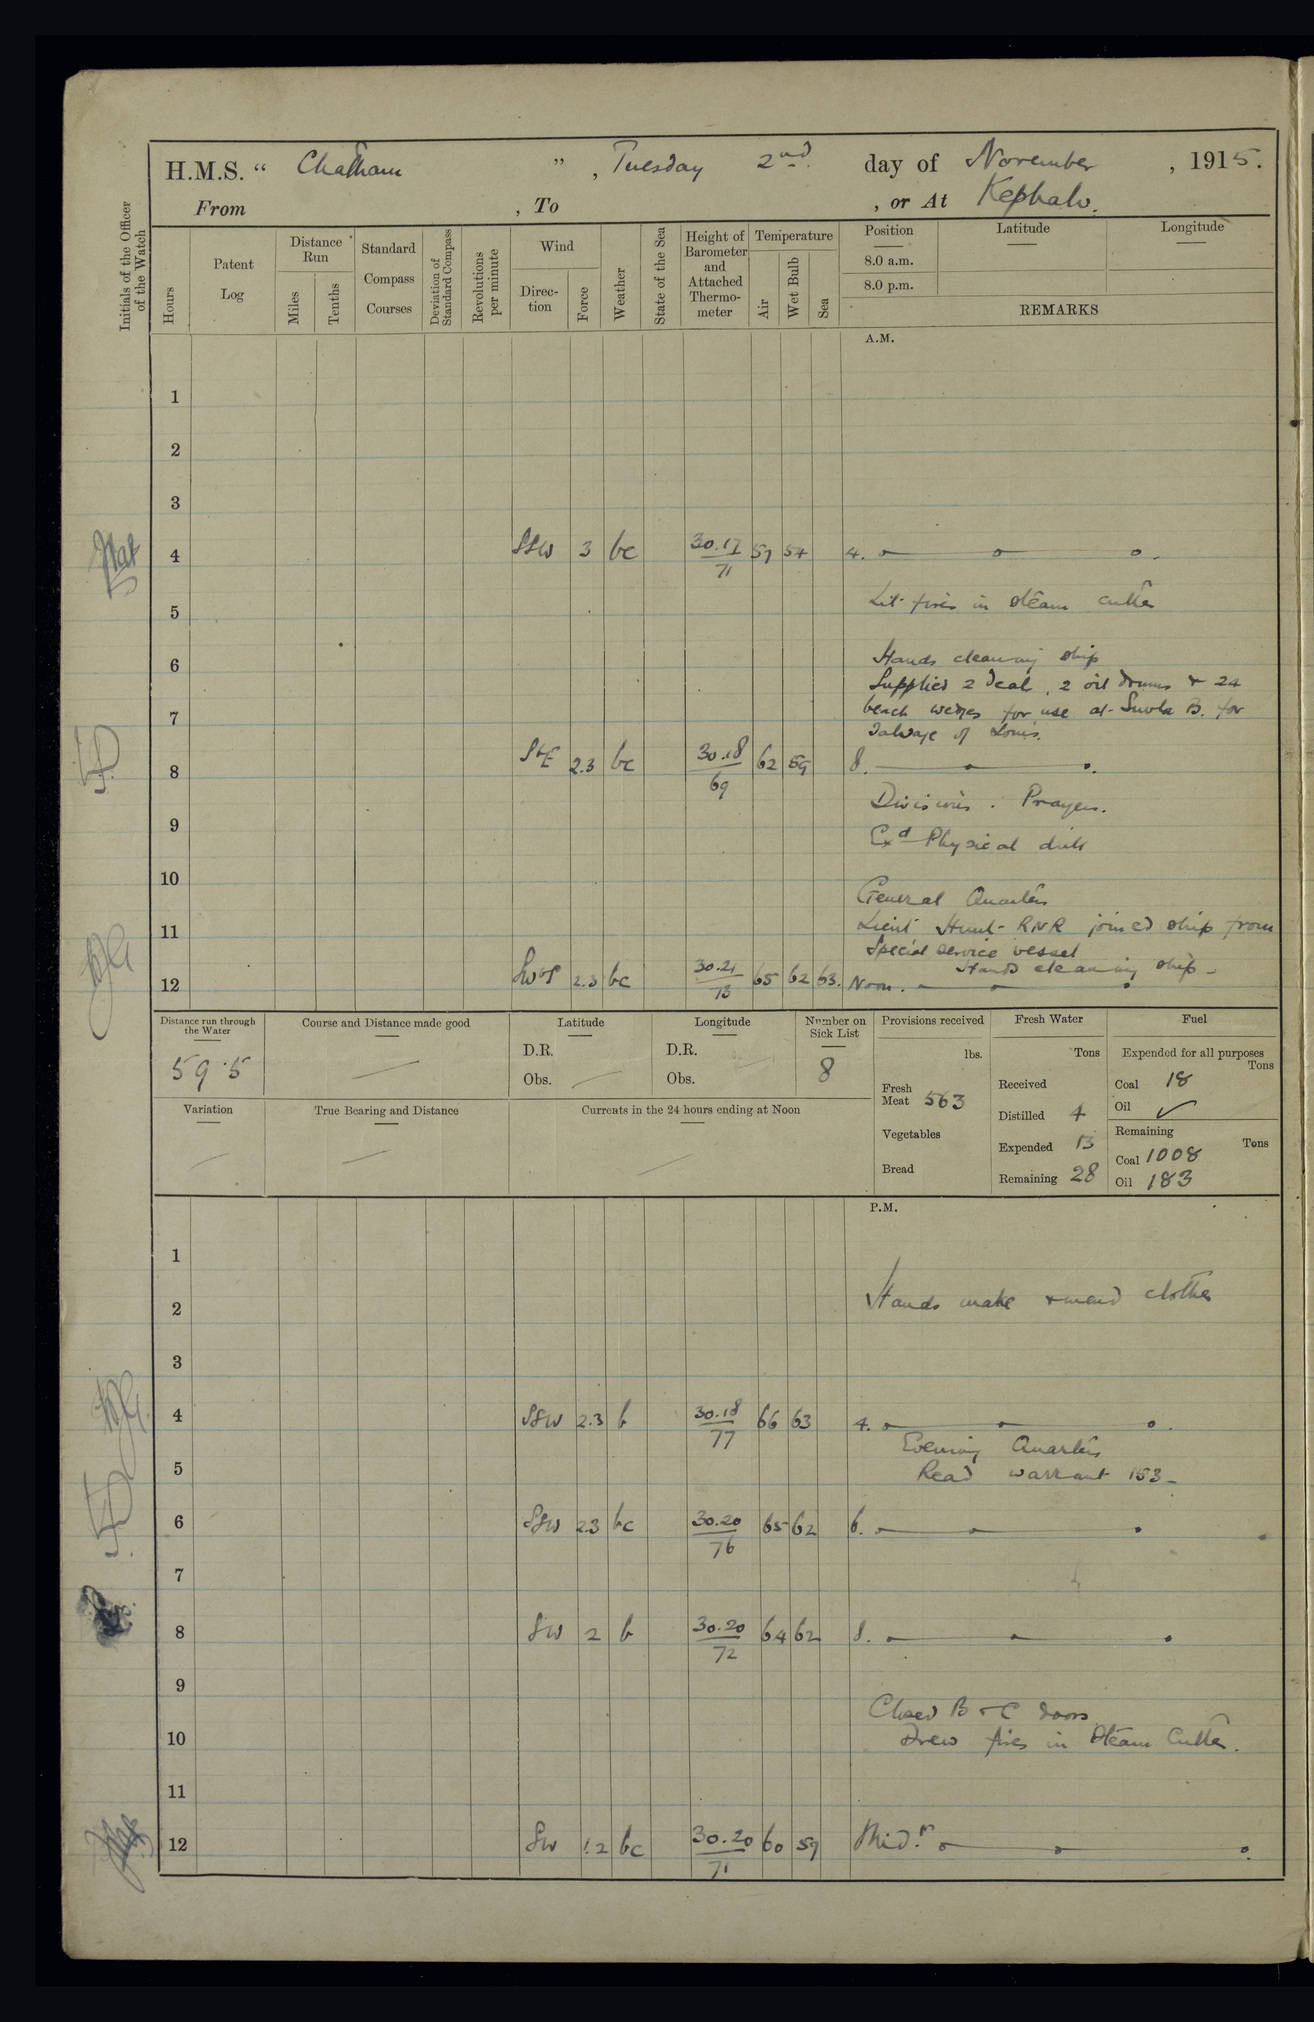 H.M.S. “ Chatham ” , Tuesday 2nd. day of November , 1915.
From , To , or At Kephalo.
Initials of the Officer of the Watch
Hours
Patent Log
Distance Run
Miles
Tenths
Standard Compass Courses
Deviation of Standard Compass
Revolutions per minute
Wind
Direction
Force
Weather
State of the Sea
Height of Barometer and Attached Thermometer
Temperature
Air
Wet Bulb
Sea
Position Latitude Longitude
8.0 a.m.
8.0 p.m.
REMARKS
A.M.
1
2
3
4 SSW 3 bc 30.17 71 57 54 4.
5 Lit fires in steam cutter
6 Hands cleaning ship
Supplied 2 deal, 2 oil drums & 24
7 beach wedges for use at Suvla B. for
salvage of Louis.
8 SbE 2.3 bc 30.18 69 62 59 8.
Divisions. Prayers.
9 Exd Physical drill
10
General Quarters
11 Lieut Hunt RNR joined ship from
Special service vessel
Hands cleaning ship
12 SWbS 2.3 bc 30.21 73 65 62 63. Noon.
Distance run through the Water
59.5
Course and Distance made good
Latitude
D.R.
Obs.
Longitude
D.R.
Obs.
Number on Sick List
8
Provisions received
lbs.
Fresh Meat 563
Vegetables
Bread
Fresh Water
Tons
Received
Distilled 4
Expended 13
Remaining 28
Fuel
Expended for all purposes
Tons
Coal 18
Oil ✓
Remaining
Tons
Coal 1008
Oil 183
Variation
True Bearing and Distance
Currents in the 24 hours ending at Noon
P.M.
1
2 Hands make & mend clothes
3
4 SSW 2.3 b 30.18 77 66 63 4.
Evening Quarters
5 Read warrant 153
6 SSW 2.3 bc 30.20 76 65 62 6.
7
8 SW 2 b 30.20 72 64 62 8.
9
Closed B & C doors
10 Drew fires in Steam Cutter.
11
12 SW 1.2 bc 30.20 71 60 59 Midt.